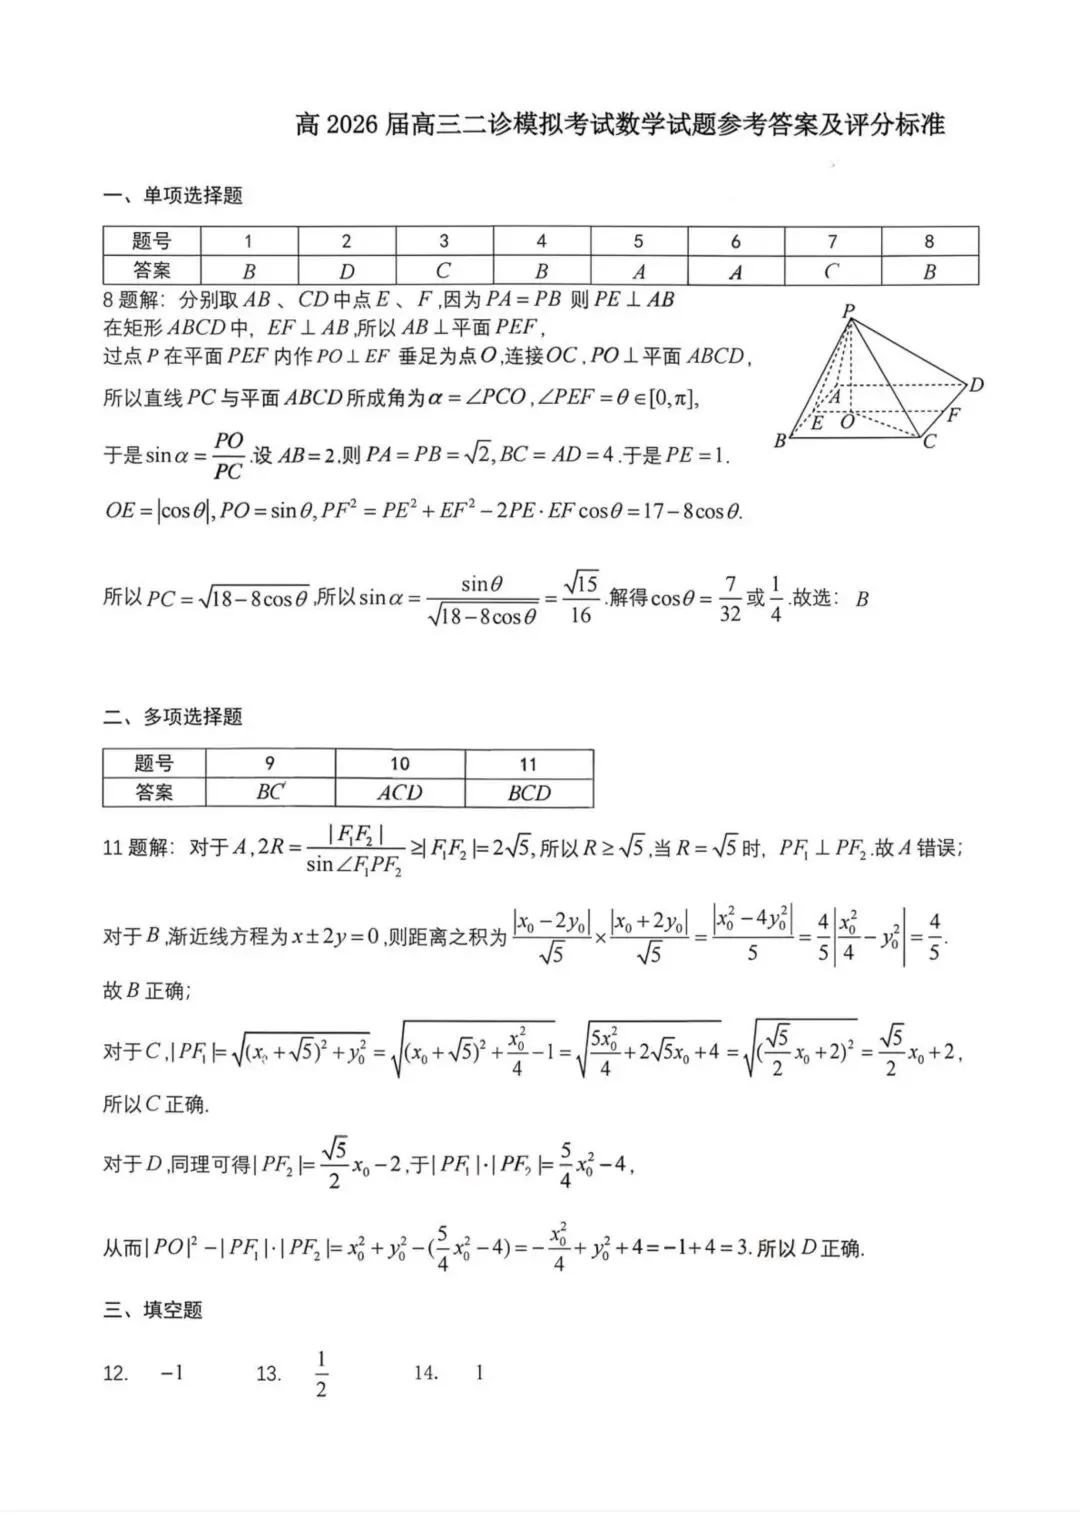 高 2026 届高三二诊模拟考试数学试题参考答案及评分标准
一、单项选择题
题号 1 2 3 4 5 6 7 8
答案 B D C B A A C B
8 题解：分别取 AB 、 CD 中点 E 、 F ,因为 PA = PB 则 PE ⊥ AB
在矩形 ABCD 中, EF ⊥ AB ,所以 AB ⊥平面 PEF ,
过点 P 在平面 PEF 内作 PO ⊥ EF 垂足为点 O ,连接 OC , PO ⊥平面 ABCD ,
所以直线 PC 与平面 ABCD 所成角为 α = ∠PCO , ∠PEF = θ ∈[0,π],
于是 sin α = PO/PC .设 AB = 2 ,则 PA = PB = √2, BC = AD = 4 .于是 PE = 1.
OE = |cos θ|, PO = sin θ, PF² = PE² + EF² − 2PE · EF cos θ = 17 − 8cos θ.
所以 PC = √(18 − 8cos θ) ,所以 sin α = sin θ/√(18 − 8cos θ) = √15/16 .解得 cos θ = 7/32 或 1/4 .故选： B
P
A
D
E
O
F
B
C
二、多项选择题
题号 9 10 11
答案 BC ACD BCD
11 题解：对于 A , 2R = |F₁F₂|/sin ∠F₁PF₂ ≥| F₁F₂ |= 2√5, 所以 R ≥ √5 ,当 R = √5 时, PF₁ ⊥ PF₂ .故 A 错误;
对于 B ,渐近线方程为 x ± 2y = 0 ,则距离之积为 |x₀ − 2y₀|/√5 × |x₀ + 2y₀|/√5 = |x₀² − 4y₀²|/5 = 4/5 |x₀²/4 − y₀²| = 4/5 .
故 B 正确;
对于 C ,| PF₁ |= √((x₀ + √5)² + y₀²) = √((x₀ + √5)² + x₀²/4 − 1) = √(5x₀²/4 + 2√5x₀ + 4) = √((√5/2 x₀ + 2)²) = √5/2 x₀ + 2 ,
所以 C 正确.
对于 D ,同理可得| PF₂ |= √5/2 x₀ − 2 ,于| PF₁ |·| PF₂ |= 5/4 x₀² − 4 ,
从而| PO |² −| PF₁ |·| PF₂ |= x₀² + y₀² − (5/4 x₀² − 4) = − x₀²/4 + y₀² + 4 = −1 + 4 = 3. 所以 D 正确.
三、填空题
12. −1 13. 1/2 14. 1